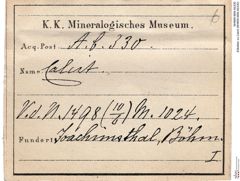 6
K. K. Mineralogisches Museum.
Acq. Post A. f. 330.
Name Calcit.
V. d. N. 1498 (10/8) M. 1024.
Fundort Joachimsthal, Böhm.
I